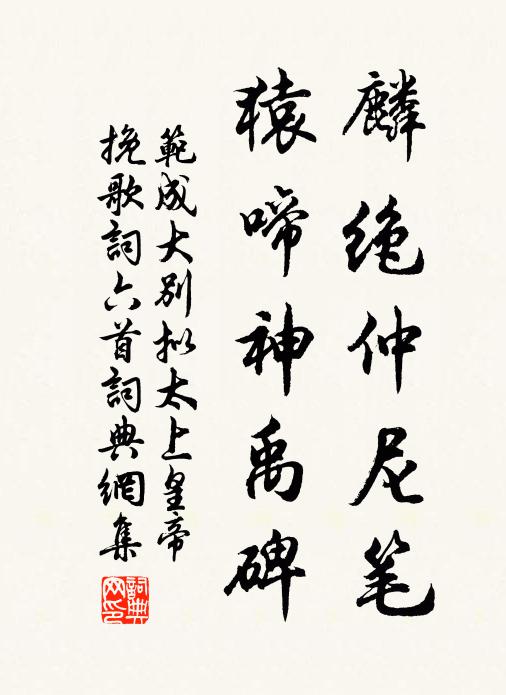 麟绝仲尼笔
猿啼神禹碑
範成大别拟太上皇帝
挽歌詞六首詞典網集
詞典
网印